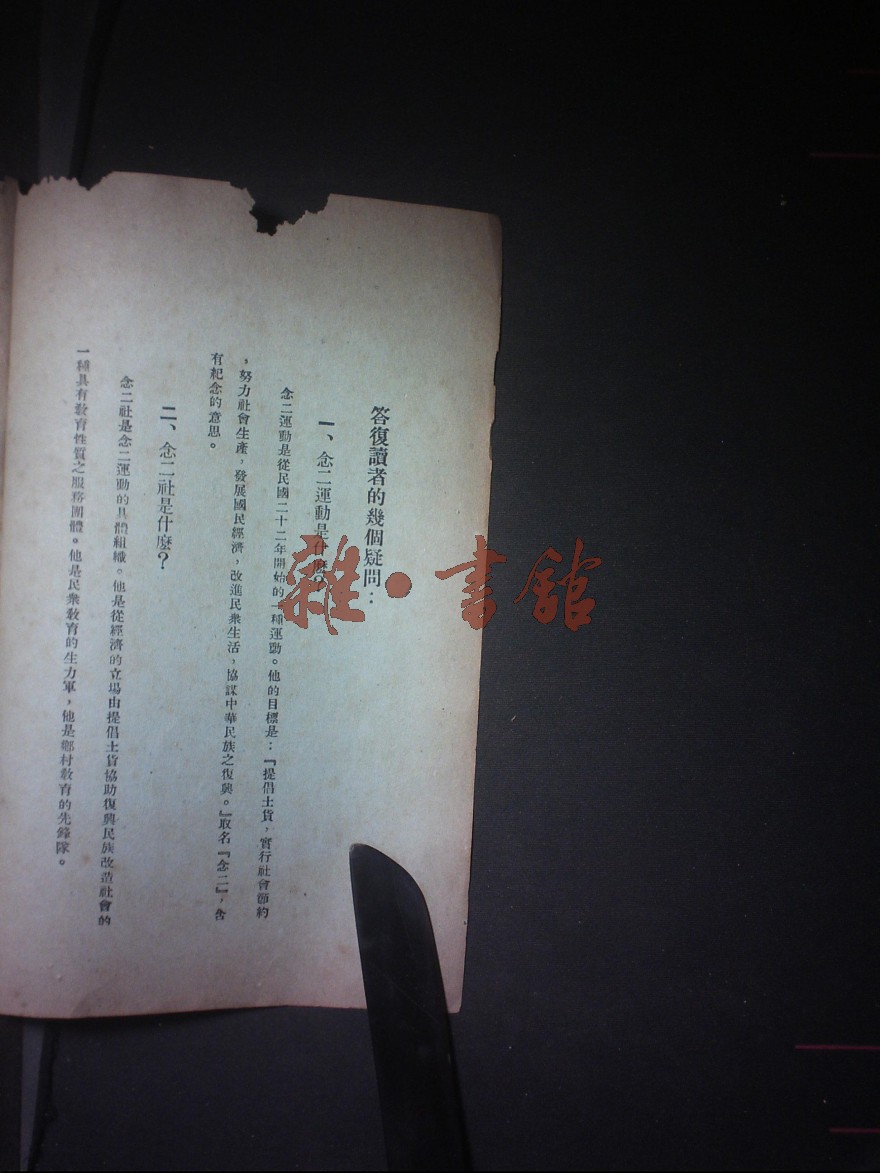 答復讀者的幾個疑問：
一、念二運動是什麼？
念二運動是從民國二十二年開始的一種運動。他的目標是：『提倡土貨，實行社會節約
，努力社會生產，發展國民經濟，改進民衆生活，協謀中華民族之復興。』取名『念二』，含
有紀念的意思。
二、念二社是什麼？
念二社是念二運動的具體組織。他是從經濟的立場由提倡土貨協助復興民族改造社會的
一種具有教育性質之服務團體。他是民衆教育的生力軍，他是鄉村教育的先鋒隊。
雜·書館